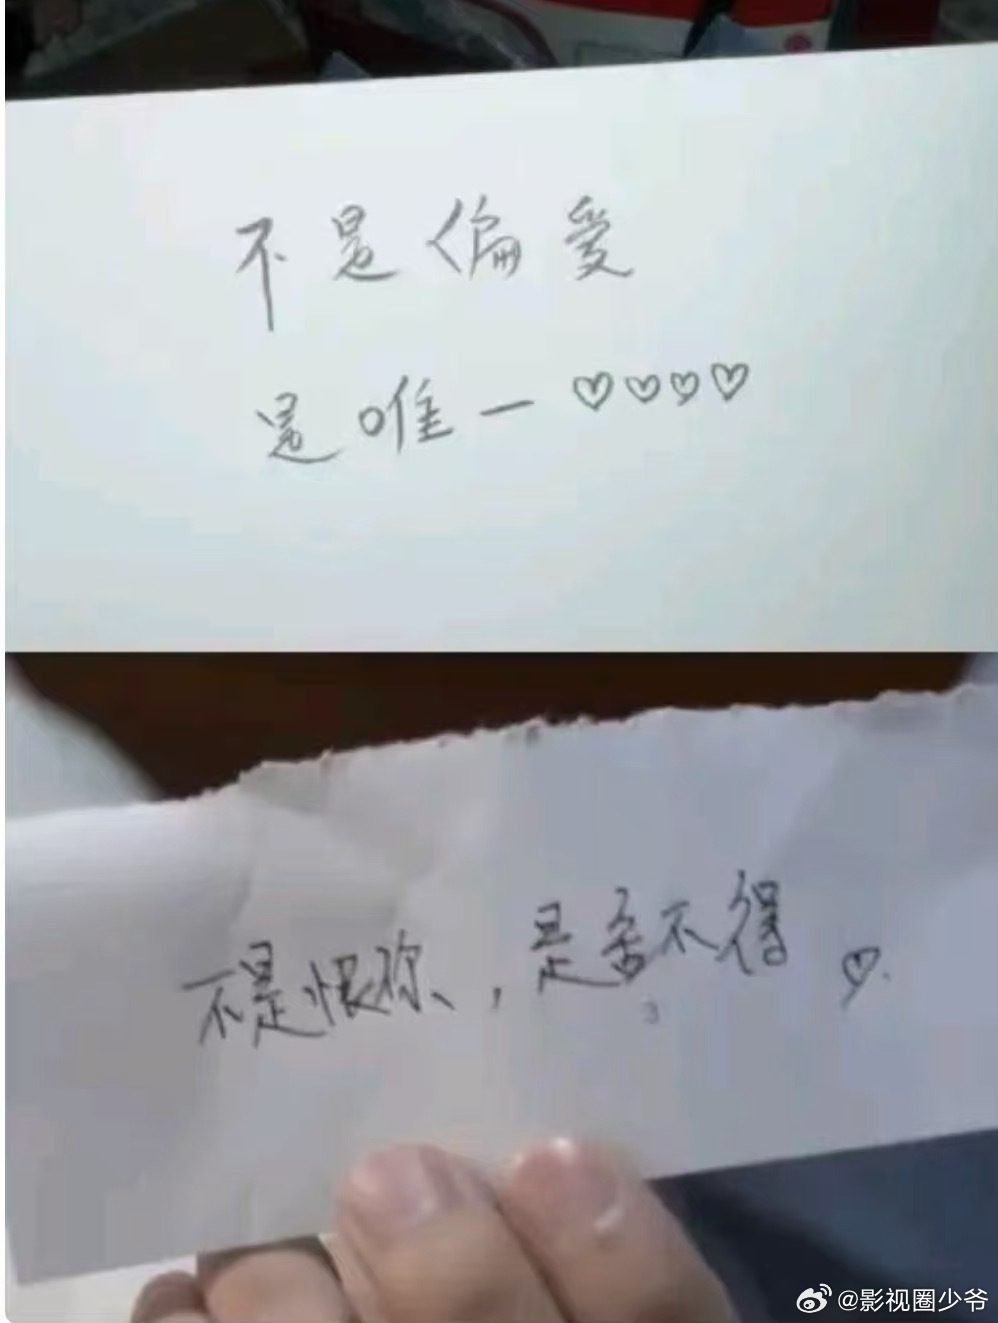 不是偏爱
是唯一♡♡♡♡
不是恨你，是舍不得♡.
@影视圈少爷